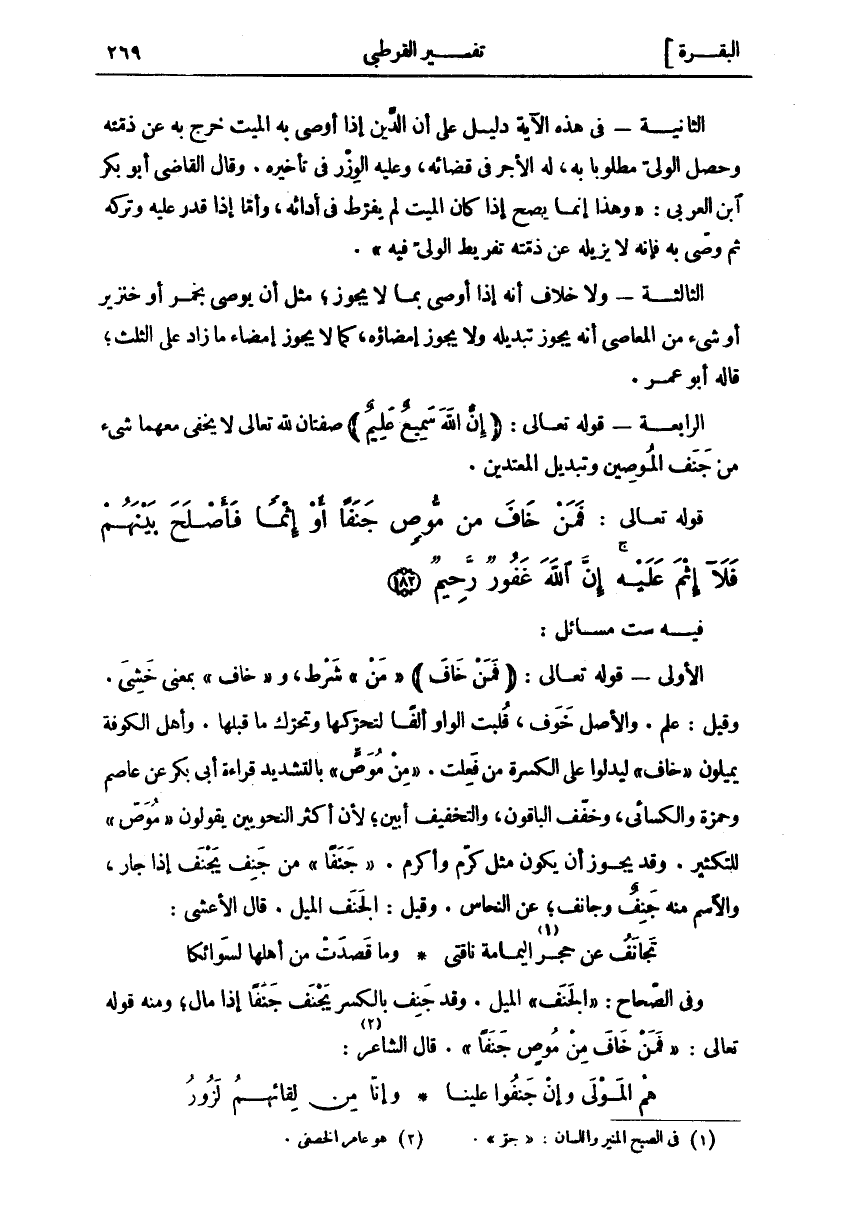 البقرة ] تفسير القرطبي ٢٦٩
الثانية — فى هذه الآية دليل على أن الدَّين إذا أوصى به الميت خرج به عن ذمّته
وحصل الولىّ مطلوبا به، له الأجر فى قضائه، وعليه الوِزْر فى تأخيره . وقال القاضى أبو بكر
ابن العربى : « وهذا إنما يصح إذا كان الميت لم يفرّط فى أدائه ، وأمّا إذا قدر عليه وتركه
ثم وصّى به فإنه لا يزيله عن ذمّته تفريط الولىّ فيه » .
الثالثة — ولا خلاف أنه إذا أوصى بما لا يجوز ؛ مثل أن يوصى بخمر أو خنزير
أو شىء من المعاصى أنه يجوز تبديله ولا يجوز إمضاؤه، كما لا يجوز إمضاء ما زاد على الثلث ؛
قاله أبو عمر .
الرابعة — قوله تعالى : ﴿ إِنَّ اللَّهَ سَمِيعٌ عَلِيمٌ ﴾ صفتان لله تعالى لا يخفى معهما شىء
من جَنَف المُوصِين وتبديل المعتدين .
قوله تعالى : فَمَنْ خَافَ مِن مُّوصٍ جَنَفًا أَوْ إِثْمًا فَأَصْلَحَ بَيْنَهُمْ
فَلَآ إِثْمَ عَلَيْهِ ۚ إِنَّ ٱللَّهَ غَفُورٌ رَّحِيمٌ ﴿١٨٢﴾
فيه ست مسائل :
الأولى — قوله تعالى : ﴿ فَمَنْ خَافَ ﴾ « مَنْ » شَرْط، و « خاف » بمعنى خَشِىَ .
وقيل : علم . والأصل خَوِف ، قُلبت الواو ألفًا لتحرّكها وتحرّك ما قبلها . وأهل الكوفة
يميلون «خاف» ليدلوا على الكسرة من فَعِلت . «مِنْ مُوَصٍّ» بالتشديد قراءة أبى بكر عن عاصم
وحمزة والكسائى، وخفّف الباقون، والتخفيف أبين؛ لأن أكثر النحويين يقولون « مُوَصّ »
للتكثير . وقد يجوز أن يكون مثل كرّم وأكرم . « جَنَفًا » من جَنِف يَجْنَف إذا جار ،
والاسم منه جَنِفٌ وجانف؛ عن النحاس . وقيل : الجَنَف الميل . قال الأعشى :
تَجانَفُ عن حجر(١) اليمامة ناقتى * وما قَصَدَتْ من أهلها لسَوَائكا
وفى الصّحاح : «الجَنَف» الميل . وقد جَنِف بالكسر يَجْنَف جَنَفًا إذا مال؛ ومنه قوله
تعالى : « فَمَنْ خَافَ مِنْ مُوصٍ جَنَفًا » . قال الشاعر(٢) :
هُمُ المَوْلَى وإنْ جَنَفُوا علينا * وإنّا مِن لِقائهمُ لَزُورُ
(١) فى الصبح المنير واللسان : « جو » . (٢) هو عامر الخصفى .